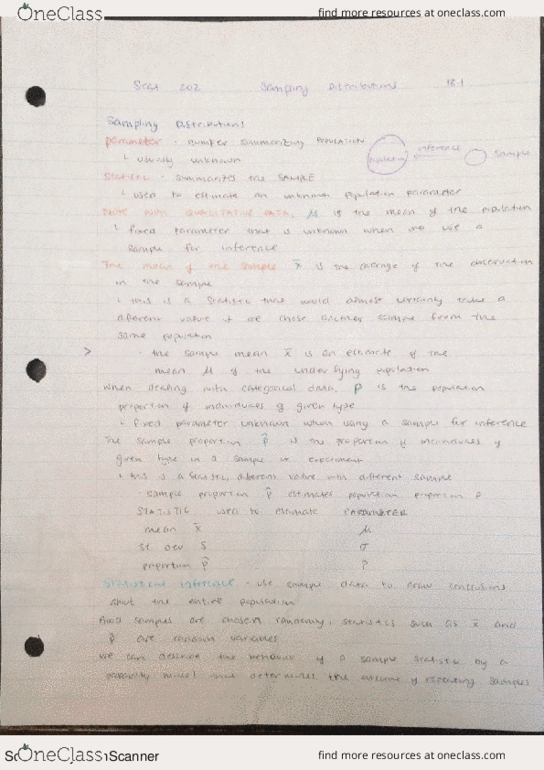 OneClass find more resources at oneclass.com
Stat 202 Sampling Distributions 18.1
Sampling Distributions
parameter - number summarizing POPULATION
↳ usually unknown
population inference sample
Statistic - summarizes the SAMPLE
↳ used to estimate an unknown population parameter
WITH QUALITATIVE DATA, μ is the mean of the population
↳ fixed parameter that is unknown when we use a
sample for inference
The mean of the sample x̄ is the average of the observation
in the sample
↳ this is a statistic that would almost certainly take a
different value if we chose another sample from the
same population
> · the sample mean x̄ is an estimate of the
mean μ of the underlying population
When dealing with categorical data, p is the population
proportion of individuals of given type
↳ fixed parameter unknown when using a sample for inference
The sample proportion p̂ is the proportion of individuals of
given type in a sample or experiment
↳ this is a statistic, different value with different sample
· sample proportion p̂ estimates population proportion p
STATISTIC used to estimate PARAMETER
mean x̄ μ
st. dev s σ
proportion p̂ p
Statistical Inference - use sample data to draw conclusions
about the entire population
samples are chosen randomly, statistics such as x̄ and
p̂ are random variables
We can describe the behavior of a sample statistic by a
probability model that determines the outcome of repeating samples
OneClass Scanner find more resources at oneclass.com